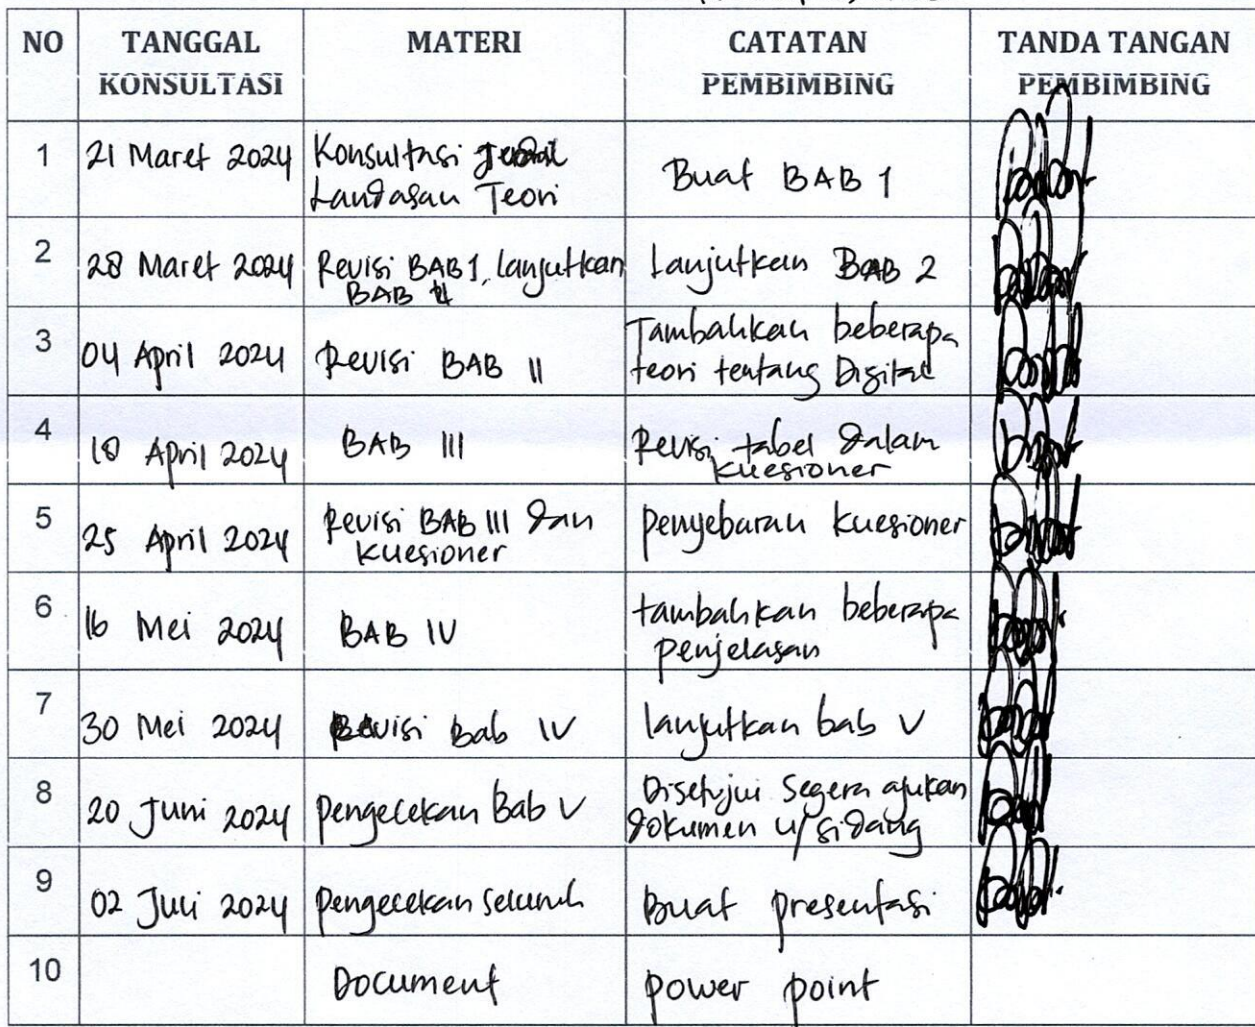 NO TANGGAL KONSULTASI MATERI CATATAN PEMBIMBING TANDA TANGAN PEMBIMBING
1 21 Maret 2024 Konsultasi Landasan Teori Buat BAB 1
2 28 Maret 2024 Revisi BAB 1, lanjutkan BAB Lanjutkan BAB 2
3 04 April 2024 Revisi BAB II Tambahkan beberapa teori tentang Digital
4 18 April 2024 BAB III Revisi tabel dalam kuesioner
5 25 April 2024 Revisi BAB III dan kuesioner penyebaran kuesioner
6 16 Mei 2024 BAB IV tambahkan beberapa penjelasan
7 30 Mei 2024 Revisi Bab IV lanjutkan bab V
8 20 Juni 2024 pengecekan Bab V Disetujui segera ajukan dokumen u/ sidang
9 02 Juli 2024 pengecekan seluruh Buat presentasi
10 Document power point